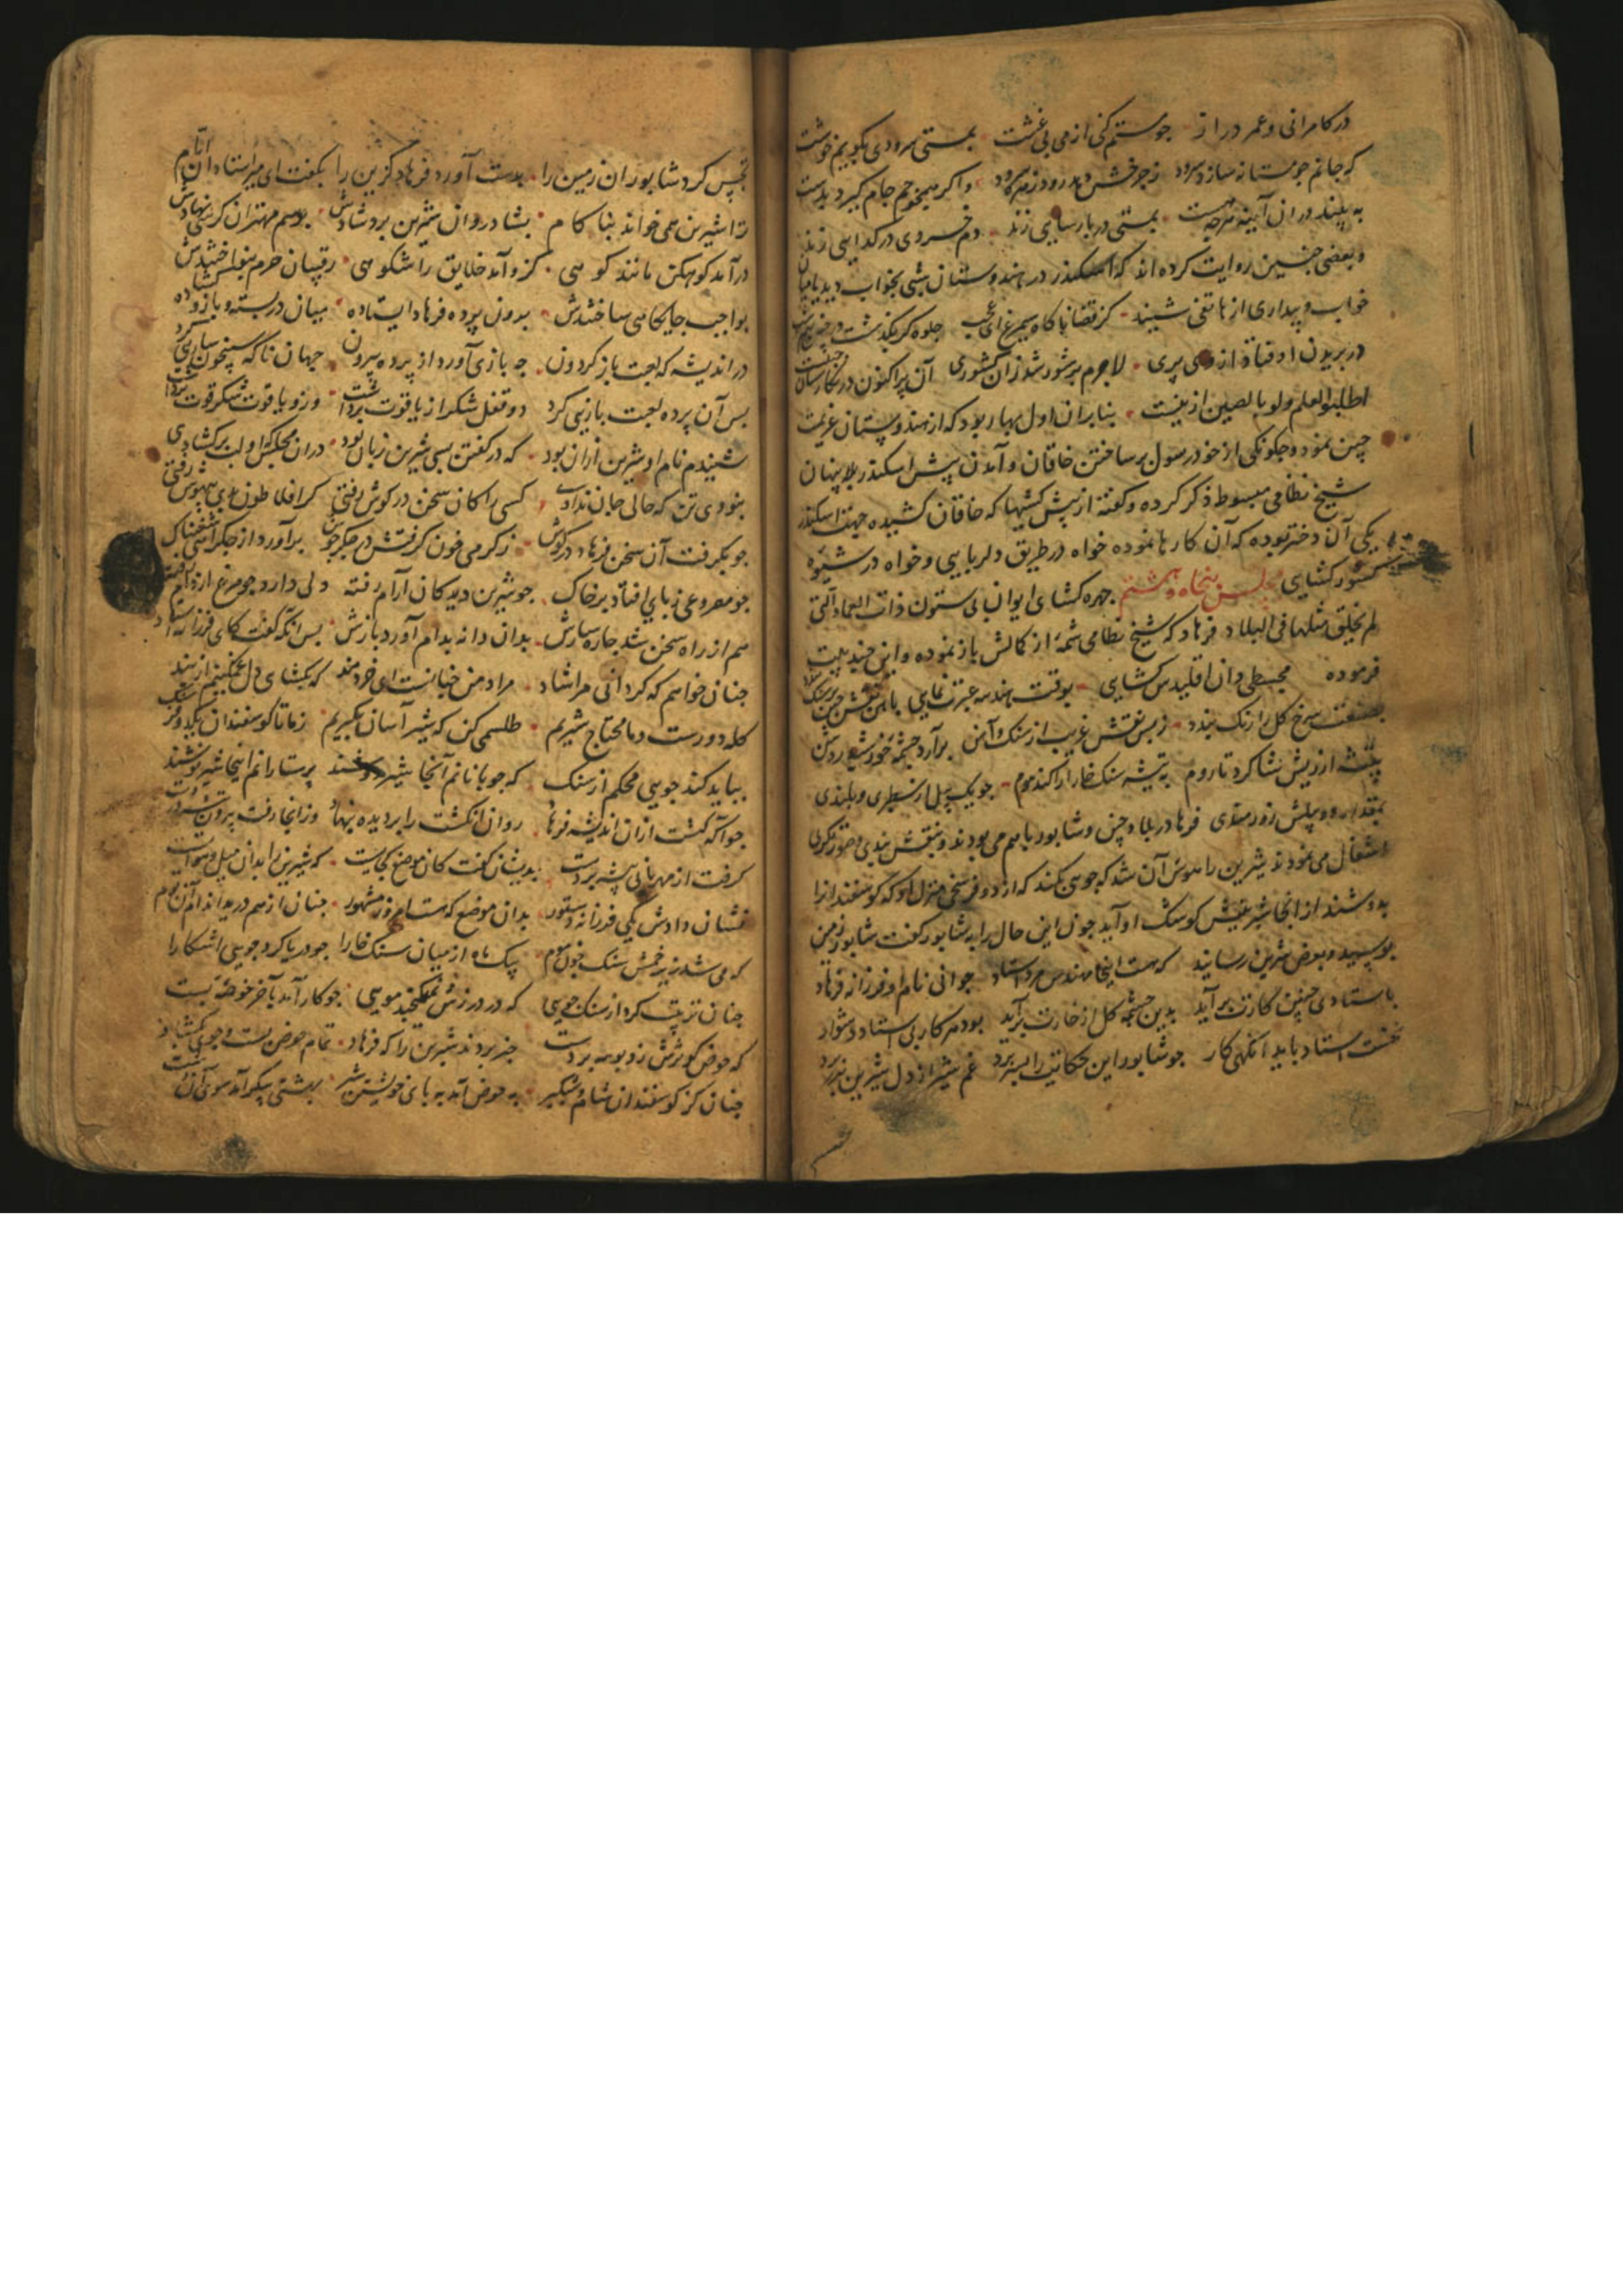 در کامرانی و عمر دراز جو مستم کنی از می بی غشت بمستی سرودی بگویم خوشت
که جانم جو مستانه سازد سرود ز چرخش دهد رود زهره درود و اگر میخورم جام گیرد بدست
به بیند در آن آینه هرچه هست بمستی در پارسایی زند دم خسروی در گدایی زند
و بعضی چنین روایت کرده اند که اسکندر در هندوستان شبی بخواب دید یا میان
خواب و بیداری از هاتفی شنید کز قضا ناگاه سیمرغ ای عجب جلوه گر بگذشت بر چین نیم شب
در بریدن اوفتاد از وی پری لاجرم پر شور شد زان کشوری آن پر اکنون در نگارستان چینست
اطلبوا العلم ولو بالصین ازینست بنابران اول بهار بود که از هندوستان عزیمت
چین نمود و چگونگی از خود رسول بر ساختن خاقان و آمدن پیش اسکندر بلا پنهان
شیخ نظامی مبسوط ذکر کرده و گفته از پیش کشیها که خاقان کشیده جهت اسکندر
یکی آن دختر بوده که آن کارها نموده خواه در طریق دلربایی و خواه در شیوه
کشور کشایی مجلس پنجاه و هشتم چهره کشای ایوان بی ستون ذات العماد التی
لم یخلق مثلها فی البلاد فرهاد که شیخ نظامی شمه از کمالش باز نموده و این چند بیت
فرموده مجسطی دان اقلیدس کشایی بوقت هندسه عبرت نمایی
بصنعت سرخ گل را رنگ بندد ز بس نقش غریب از سنگ و آهن
به تیشه سنگ خارا را کند موم جو یک پیل از سطبری و بلندی
بمقدار دو پیلش زورمندی فرهاد در بلاد چین و شابور با هم می بودند و بنقش بندی و صورتگری
اشتغال می نمودند شیرین را هوس آن شد که جویی بکند که از دو فرسخی منزل او که گوسفندانرا
بدوشند از انجا شیر پیش کوشک او آید جون این حال را به شابور گفت شابور زمین
ببوسید و بعرض شیرین رسانید که هست اینجا مهندس مرد استاد جوانی نام او فرزانه فرهاد
باستادی چنین کارت بر آید بدین چشمه گل از خارت بر آید بود هر کار بی استاد دشوار
نخست استاد باید آنگهی کار جو شابور این حکایت را بسر برد غم شیر از دل شیرین بدر برد
تجسس کرد شابور آن زمین را بدست آورد فرهاد گزین را بگفت ای میر استادان ایام
ترا شیرین همی خواند بنا کام بشادروان شیرین برد شادش برسم مهتران کرسی نهادش
در آمد کوهکن مانند کوهی کزو آمد خلایق را شکوهی رقیبان حرم بنواختندش
بواجب جایگاهی ساختندش برون پرده فرهاد ایستاده میان در بسته و بازو گشاده
در اندیشه که لعبت باز گردون چه بازی آورد از پرده بیرون جهان ناگه شبیخون سازیی کرد
پس آن پرده لعبت بازیی کرد دو قفل شکر از یاقوت برداشت وزو یاقوت و شکر قوت برداشت
شنیدم نام او شیرین ازان بود که در گفتن بسی شیرین زبان بود در آن مجلس که او لب بر کشادی
نبودی تن که حالی جان ندادی کسی را کان سخن در گوش رفتی گر افلاطون بدی بیهوش رفتی
جو بگرفت آن سخن فرهاد در گوش ز گرمی خون گرفتش در جگر جوش برآورد از جگر آهی شغبناک
جو مصروعی ز پای افتاد بر خاک جو شیرین دید کان آرام رفته دلی دارد جو مرغ از دام رفته
هم از راه سخن شد چاره سازش بدان دانه بدام آورد بازش پس آنگه گفت کای فرزانه استاد
چنان خواهم که گردانی مرا شاد مراد من چنانست ای خردمند که بگشای دل غمگینم از بند
گله دورست و ما محتاج شیریم طلسمی کن که شیر آسان بگیریم
بباید کند جویی محکم از سنگ که چوپانانم آنجا شیر دوشند پرستارانم اینجا شیر نوشند
جو آگه گشت ازان اندیشه فرهاد روان انگشت را بر دیده بنهاد وز انجا رفت بیرون تیشه در دست
گرفت از مهربانی پیشه بر دست
نشان دادش یکی فرزانه دستور بدان موضع که هست امروز مشهور چنان از هم درید اندام آن بوم
که می شد زیر زخمش سنگ چون موم از میان سنگ خارا جو دریا کرد جویی آشکارا
چنان ترتیب کرد از سنگ جویی که در درزش نمیگنجید مویی جو کار آمد بآخر حوضه بست
که حوض کوثرش زد بوسه بر دست خبر بردند شیرین را که فرهاد تمام حوض بست و جوی بگشاد
چنان کز گوسفندان شام و شبگیر به حوض آید به پای خویشتن شیر بهشتی پیکر آمد سوی آن دشت